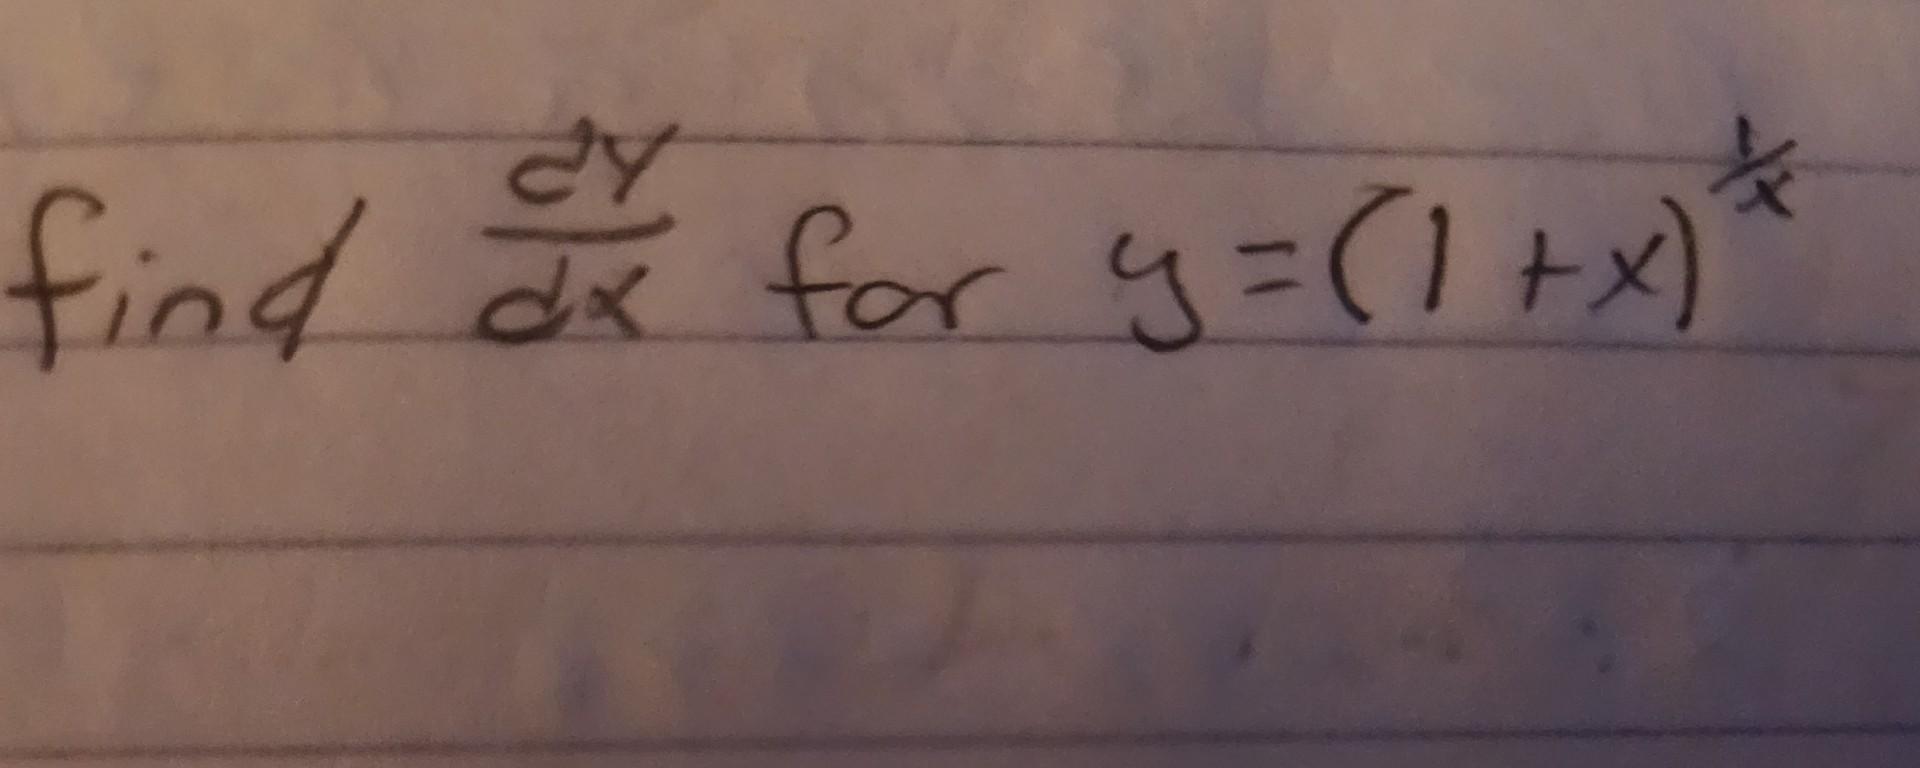 find dy/dx for y=(1+x)^1/x